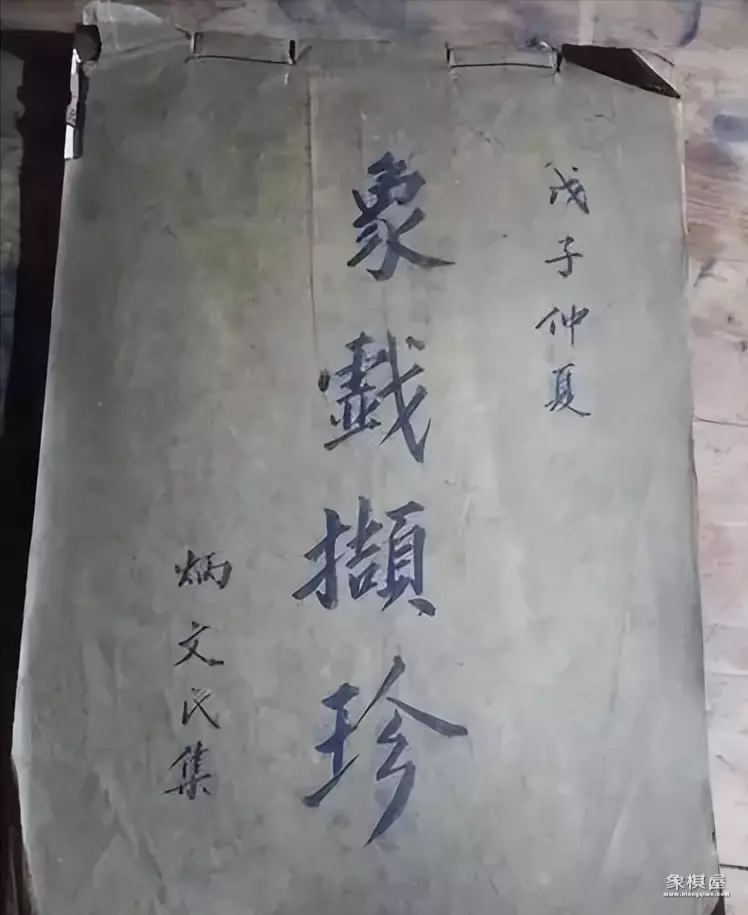 戊子仲夏
象戯擷珍
炳文氏集
象棋屋
www.xiangqiwu.com